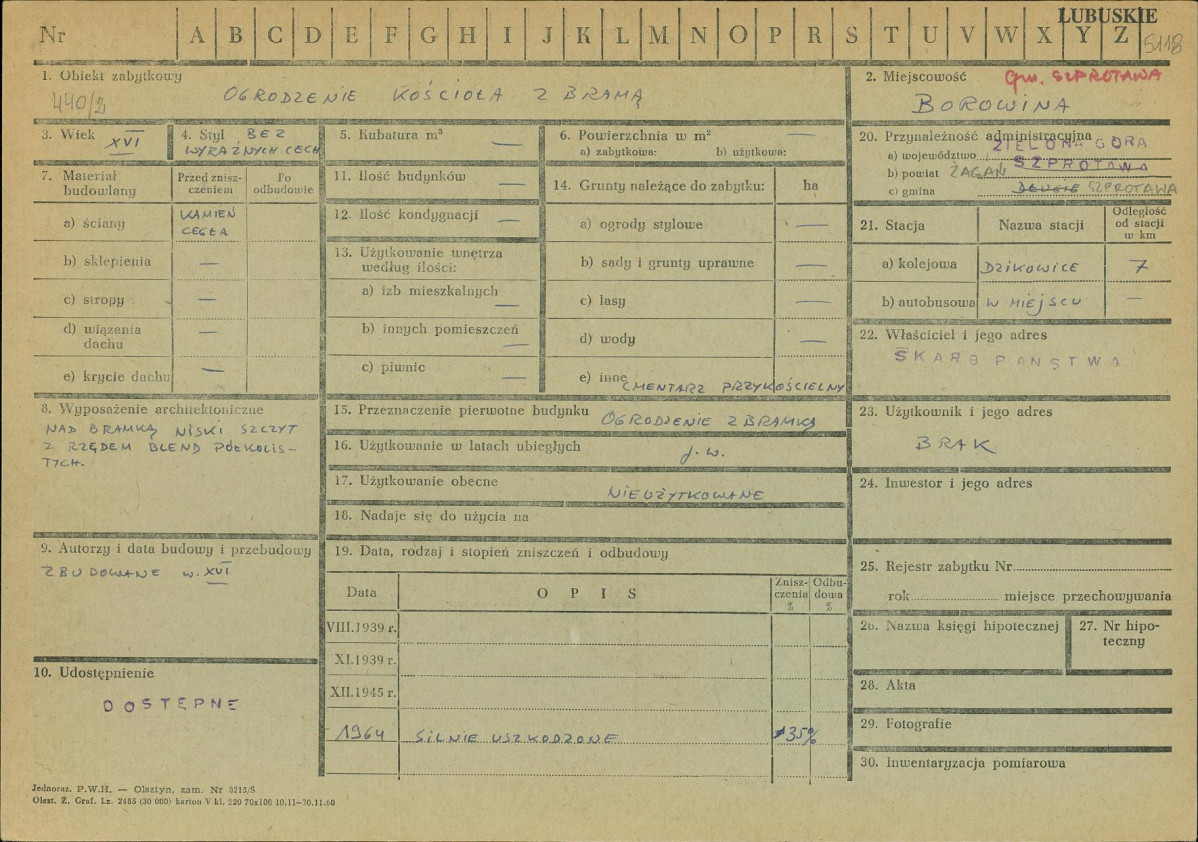 LUBUSKIE
Nr A B C D E F G H I J K L M N O P R S T U V W X Y Z 5118
1. Obiekt zabytkowy
440/2
OGRODZENIE KOŚCIOŁA Z BRAMĄ
2. Miejscowość gm. SZPROTAWA
BOROWINA
3. Wiek XVI
4. Styl BEZ
WYRAŹNYCH CECH
5. Kubatura m³ —
6. Powierzchnia w m² —
a) zabytkowa: b) użytkowa:
20. Przynależność administracyjna
a) województwo ZIELONA GÓRA
b) powiat ŻAGAŃ SZPROTAWA
c) gmina DŁUGIE SZPROTAWA
7. Materiał
budowlany
Przed znisz-
czeniem
Po
odbudowie
a) ściany KAMIEŃ
CEGŁA
b) sklepienia —
c) stropy —
d) wiązania
dachu —
e) krycie dachu —
11. Ilość budynków —
12. Ilość kondygnacji —
13. Użytkowanie wnętrza
według ilości:
a) izb mieszkalnych —
b) innych pomieszczeń —
c) piwnic —
14. Grunty należące do zabytku: ha
a) ogrody stylowe —
b) sady i grunty uprawne —
c) lasy —
d) wody —
e) inne CMENTARZ PRZYKOŚCIELNY
21. Stacja Nazwa stacji Odległość
od stacji
w km
a) kolejowa DZIKOWICE 7
b) autobusowa W MIEJSCU —
22. Właściciel i jego adres
SKARB PAŃSTWA
8. Wyposażenie architektoniczne
NAD BRAMKĄ NISKI SZCZYT
Z RZĘDEM BLEND PÓŁKOLIS-
TYCH.
15. Przeznaczenie pierwotne budynku OGRODZENIE Z BRAMKĄ
16. Użytkowanie w latach ubiegłych j. w.
17. Użytkowanie obecne NIEUŻYTKOWANE
18. Nadaje się do użycia na
23. Użytkownik i jego adres
BRAK
24. Inwestor i jego adres
9. Autorzy i data budowy i przebudowy
ZBUDOWANE w. XVI
10. Udostępnienie
DOSTĘPNE
19. Data, rodzaj i stopień zniszczeń i odbudowy
Data OPIS Znisz-
czenia
%
Odbu-
dowa
%
VIII.1939 r.
XI.1939 r.
XII.1945 r.
1964 SILNIE USZKODZONE 35%
25. Rejestr zabytku Nr
rok miejsce przechowywania
26. Nazwa księgi hipotecznej
27. Nr hipo-
teczny
28. Akta
29. Fotografie
30. Inwentaryzacja pomiarowa
Jednoraz. P.W.H. — Olsztyn, zam. Nr 3215/S
Olszt. Z. Graf. Lz. 2485 (30 000) karton V kl. 220 70x100 10.11—30.11.60